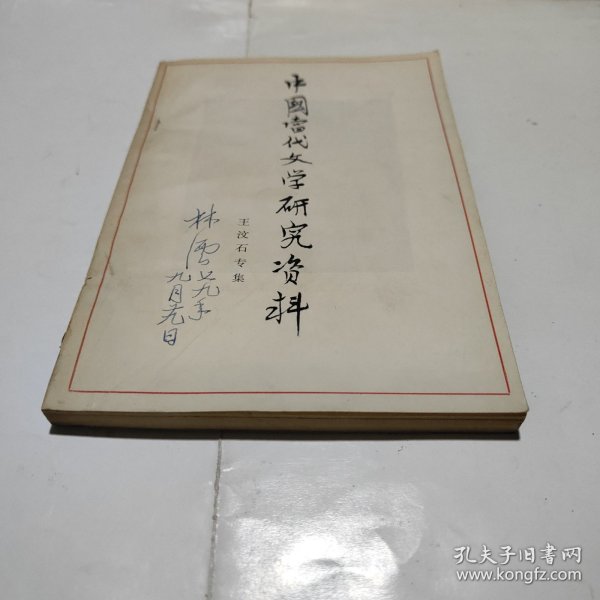 中國當代文学研究资料
王汶石专集
林
九月
日
孔夫子旧书网
www.kongfz.com